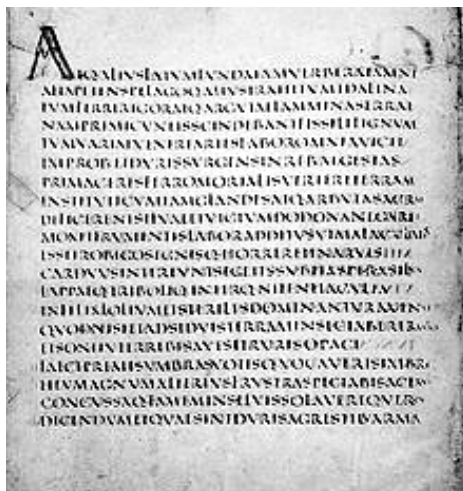 ATQ·ALIVSLATVMFVNDAIAMVERBERATAMNE
ALTAPETENSPELAGOQ·ALIVSTRAHITVMIDALINA
TVMFERRIRIGORATQ·ARGVTAELAMMINASERRAE
NAMPRIMICVNEISSCINDEBANTFISSILELIGNVM
TVMVARIAEVENEREARTESLABOROMNIAVICIT
IMPROBETDVRISVRGENSINREBVSEGESTAS
PRIMACERESFERROMORTALISVERTERETERRAM
INSTITVITCVMIAMGLANDESATQ·ARBVTASACRAE
DEFICERENTSILVAEETVICTVMDODONANEGARET
MOXETFRVMENTISLABORADDITVSVTMALACVLMOS
ESSETROBIGOSEGNISQ·HORRERETINARVIS
CARDVVSINTEREVNTSEGETESSVBITASPERASILVA
LAPPAEQ·TRIBOLIQ·INTERQ·NITENTIACVLTA
INFELIXLOLIVMETSTERILESDOMINANTVRAVENAE
QVODNISIETADSIDVISTERRAMINSECTABERERASTRIS
ETSONITVTERREBISAVESETRVRISOPACI
FALCEPREMESVMBRASVOTISQ·VOCAVERISIMBRE
HEVMAGNVMALTERIVSFRVSTRASPECTABISACERV
CONCVSSAQ·FAMEMINSILVISSOLAVEREQVERCV
DICENDVMETQVAESINTDVRISAGRESTIBVARMA